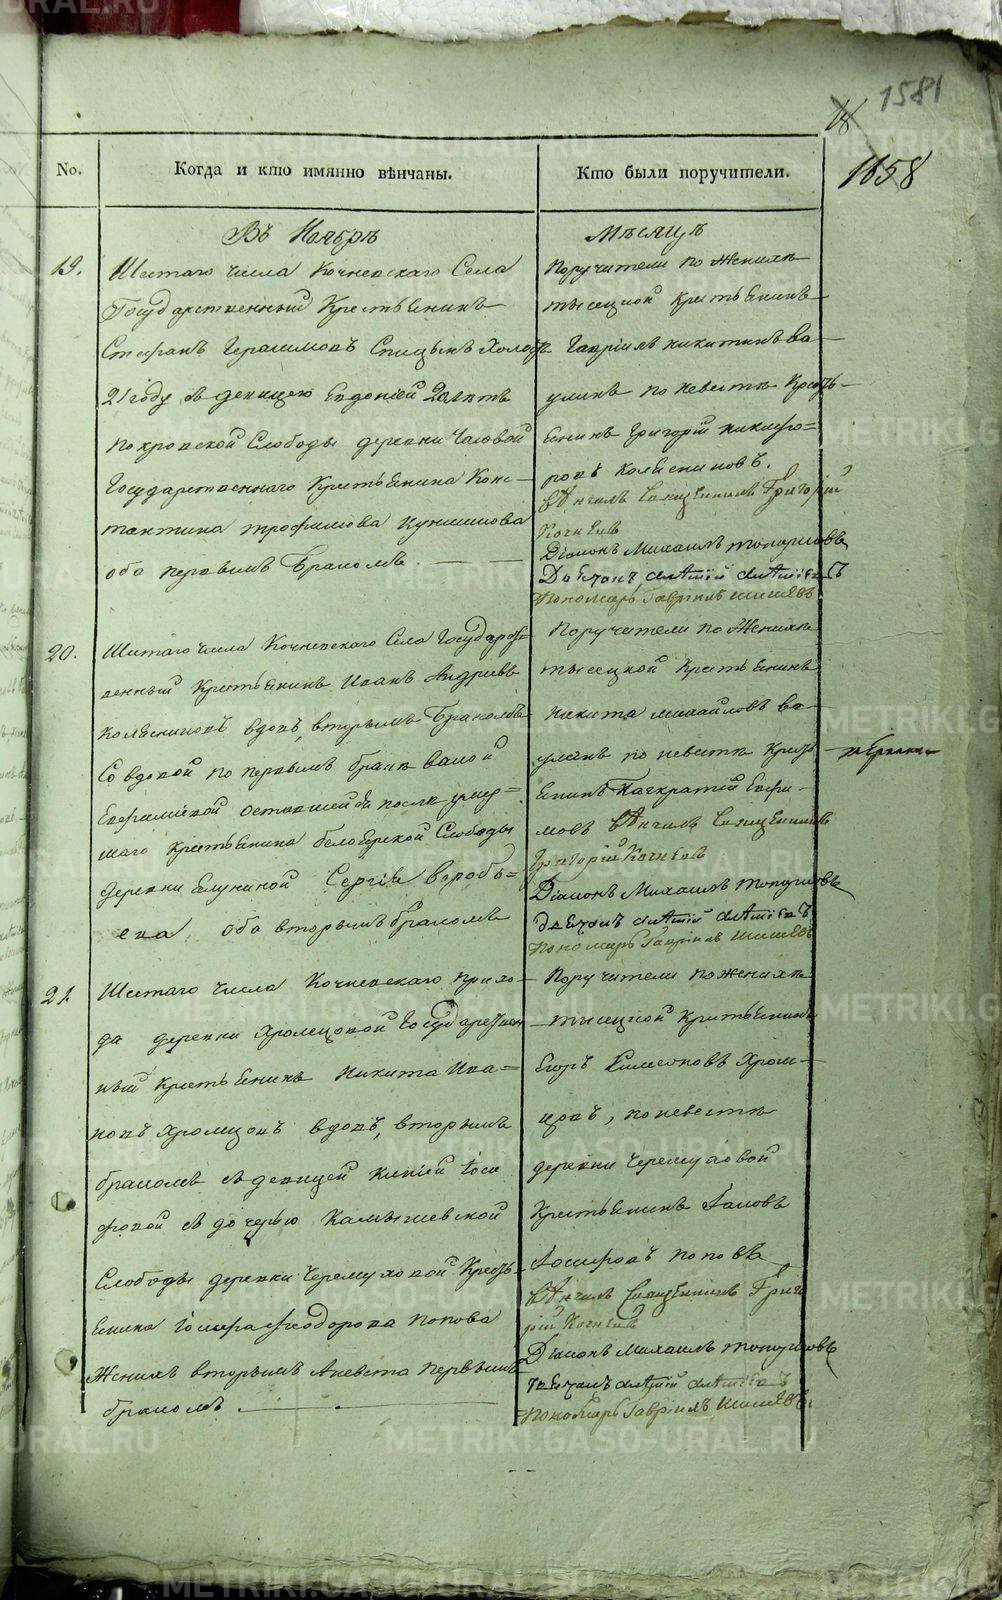 1581
18
1658
No.
Когда и кто имянно вѣнчаны.
Кто были поручители.
Въ Ноябрѣ
Мѣсяцѣ
19.
Шестаго числа Кочневскаго Села
Государственный Крестьянинъ
Стефанъ Герасимовъ Спицынъ Холостъ
21 году съ девицею Евдокіей 20 лѣтъ
покровской Слободы деревни Часовой
Государственнаго Крестьянина Конс-
тантина трофимова
оба первымъ Бракомъ.
Поручители по Женихѣ
тысецкой крестьянинъ
Гавріилъ никитинъ ва
улинъ по невестѣ Кресть-
янинъ Григорій никифо=
ровъ Колясниковъ.
вѣнчалъ Священникъ Григорій
Кочневъ
Діаконъ Михаилъ топорковъ
Пономарь Гавріилъ шишевъ
20.
Шестаго числа Кочневскаго Села Государст-
венный Крестьянинъ Иванъ Андреевъ
Колясниковъ вдовъ, вторымъ Бракомъ
Со вдовой по первымъ бракѣ
Ефимовой оставшейся после умер=
шаго крестьянина белоярской Слободы
деревни Сергія вороб=
ева, оба вторымъ бракомъ
Поручители по Женихѣ
тысецкой Крестьянинъ
Никита михайловъ ва
улинъ по невестѣ Крест
янинъ Панкратій Ефи-
мовъ вѣнчалъ Священникъ
Григорій Кочневъ
Діаконъ Михаилъ топорковъ
Пономарь Гавріилъ шишевъ
21.
Шестаго числа Кочневскаго прихо-
да деревни Хромцовой Государствен
ный Крестьянинъ Никита Ива=
новъ Хромцовъ вдовъ, вторымъ
бракомъ съ девицей Ксеніей Іоси
фовой съ дочерью Камышевской
Слободы деревни Черемуховой Кресть-
янина Іосифа Феодорова попова
Женихъ вторымъ Аневеста первымъ
бракомъ.
Поручители по женихѣ
тысецкой Крестьянинъ
Егоръ Хром-
цовъ, по невестѣ
деревни Черемуховой
Крестьянинъ Іаковъ
Іосифовъ поповъ
вѣнчалъ Священникъ Григо
рій Кочневъ
Діаконъ Михаилъ топорковъ
Пономарь Гавріилъ шишевъ
METRIKI.GASO-URAL.RU